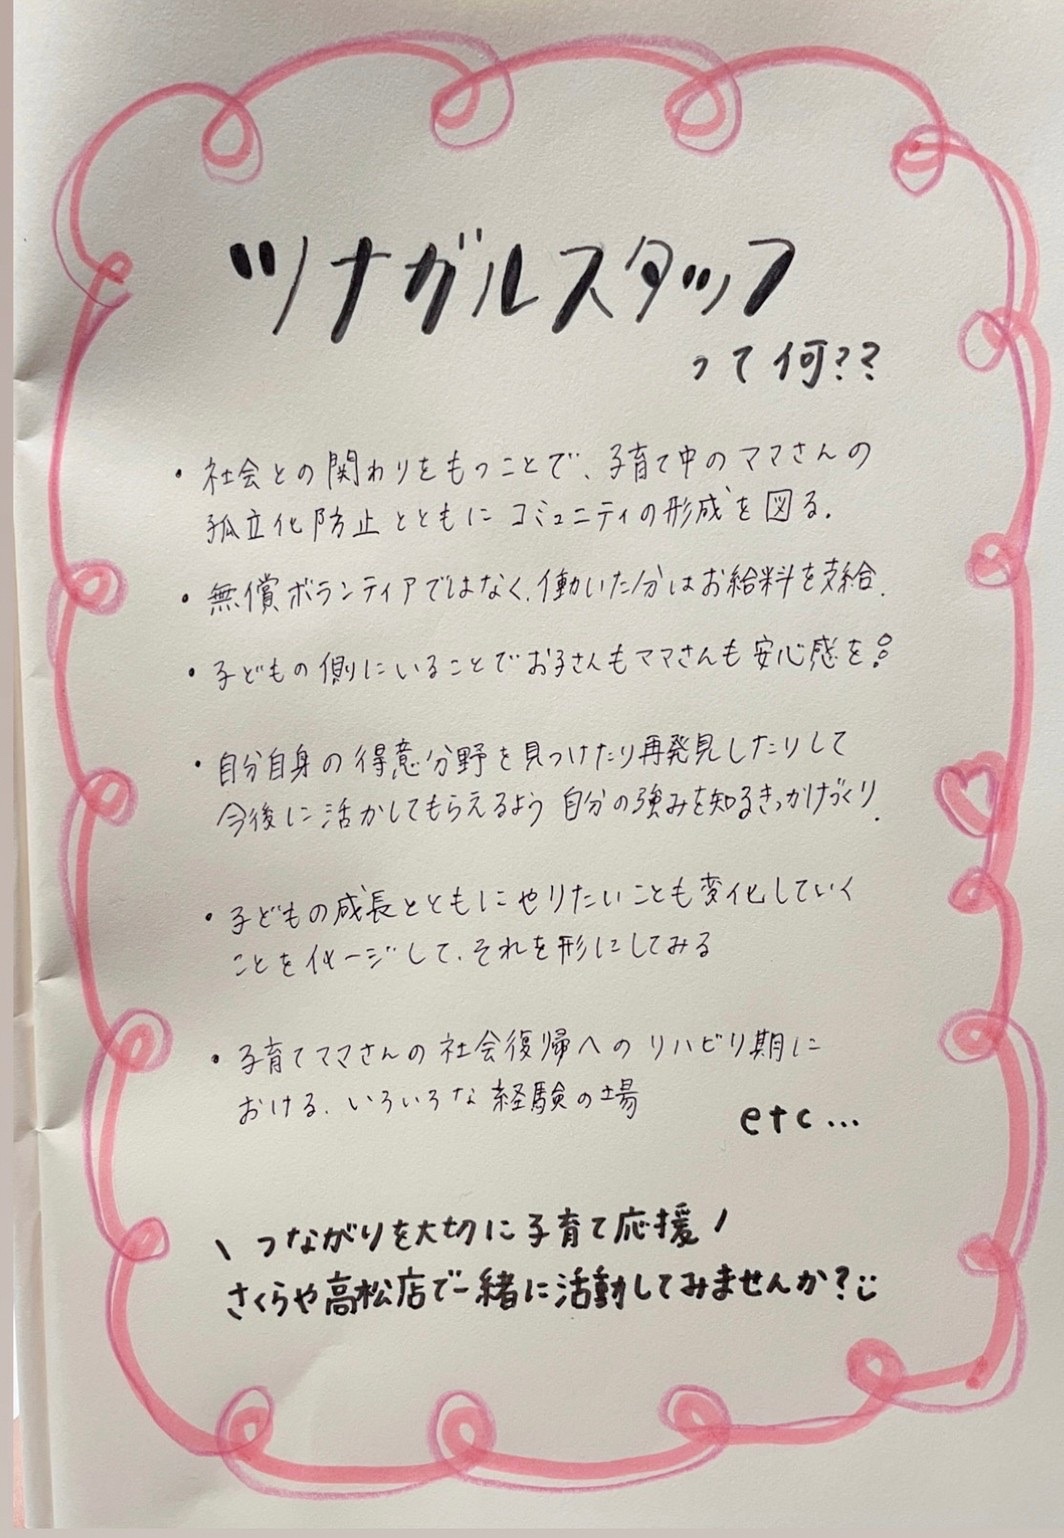 ツナガルスタッフ
って何??
・社会との関わりをもつことで、子育て中のママさんの
孤立化防止とともにコミュニティの形成を図る.
・無償ボランティアではなく、働いた分はお給料を支給.
・子どもの側にいることでお子さんもママさんも安心感を!
・自分自身の得意分野を見つけたり再発見したりして
今後に活かしてもらえるよう自分の強みを知るきっかけづくり.
・子どもの成長とともにやりたいことも変化していく
ことをイメージして、それを形にしてみる
・子育てママさんの社会復帰へのリハビリ期に
おける、いろいろな経験の場
etc...
\ つながりを大切に子育て応援 /
さくらや高松店で一緒に活動してみませんか?